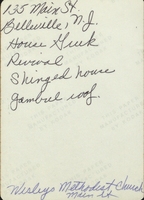 135 Main St.
Belleville, N.J.
House Greek
Revival
Shinged house
gambrel roof.
Wesleys Methodist Church
Main St